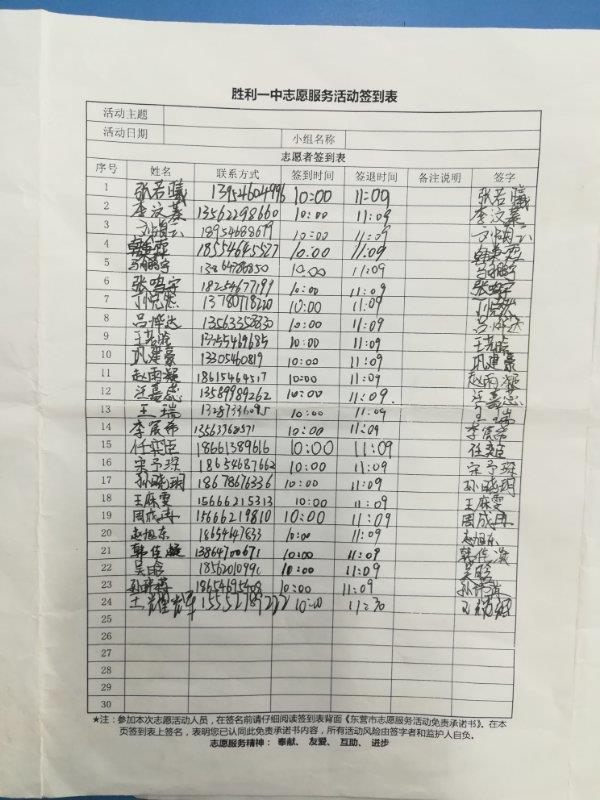 胜利一中志愿服务活动签到表
活动主题
活动日期 小组名称
志愿者签到表
序号 姓名 联系方式 签到时间 签退时间 备注说明 签字
1 张若曦 13954604996 10:00 11:09 张若曦
2 李汶蓁 13562298660 10:00 11:09 李汶蓁
3 18954683679 10:00 11:09
4 18554645527 10:00 11:09
5 10:00 11:09
6 张鸣宇 18254677199 10:00 11:09 张鸣宇
7 13780718220 10:00 11:09
8 吕烨达 13563352830 10:00 11:09 吕烨达
9 10:00 11:09
10 巩建豪 13305460819 10:00 11:09 巩建豪
11 赵雨凝 18615464517 10:00 11:09 赵雨凝
12 13589989262 10:00 11:09
13 王瑞 10:00 11:09 王瑞
14 李宸希 10:00 11:09 李宸希
15 任奕臣 18661389616 10:00 11:09 任奕臣
16 宋予琛 18654687662 10:00 11:09 宋予琛
17 孙晓玥 18678676336 10:00 11:09 孙晓玥
18 王麻雯 15666215313 10:00 11:09 王麻雯
19 周成冉 15666219810 10:00 11:09 周成冉
20 赵旭东 18654647833 10:00 11:09 赵旭东
21 韩佳凝 13864700671 10:00 11:09 韩佳凝
22 吴晗 10:00 11:09 吴晗
23 10:00 11:09
24 王耀辉 15552189222 10:00 11:30
25
26
27
28
29
30
*注：参加本次志愿活动人员，在签名前请仔细阅读签到表背面《东营市志愿服务活动免责承诺书》。在本
页签到表上签名，表明您已认同此免责承诺书内容，所有活动风险由签字者和监护人自负。
志愿服务精神： 奉献、 友爱、 互助、 进步